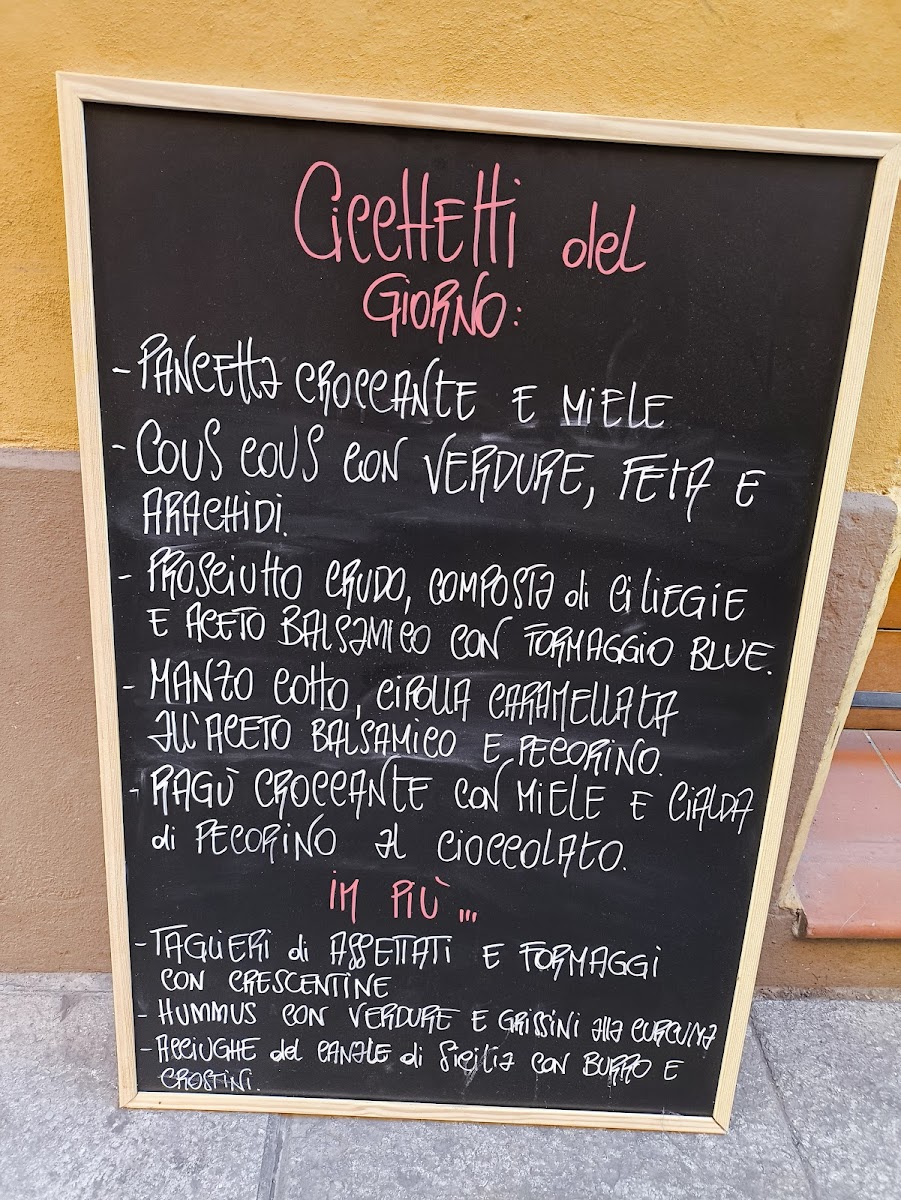 Cicchetti del
GIORNO:
- PANCETTA CROCCANTE E MIELE
- COUS COUS CON VERDURE, FETA E
ARACHIDI.
- PROSCIUTTO CRUDO, COMPOSTA di CILIEGIE
E ACETO BALSAMICO CON FORMAGGIO BLUE.
- MANZO COTTO, CIPOLLA CARAMELLATA
All'ACETO BALSAMICO E PECORINO.
- RAGÙ CROCCANTE CON MIELE E CIALDA
di PECORINO AL CIOCCOLATO.
IN PIÙ ...
- TAGLIERI di AFFETTATI E FORMAGGI
CON CRESCENTINE
- HUMMUS CON VERDURE E GRISSINI alla CURCUMA
- ACCIUGHE del CANALE di Sicilia CON BURRO E
CROSTINI.